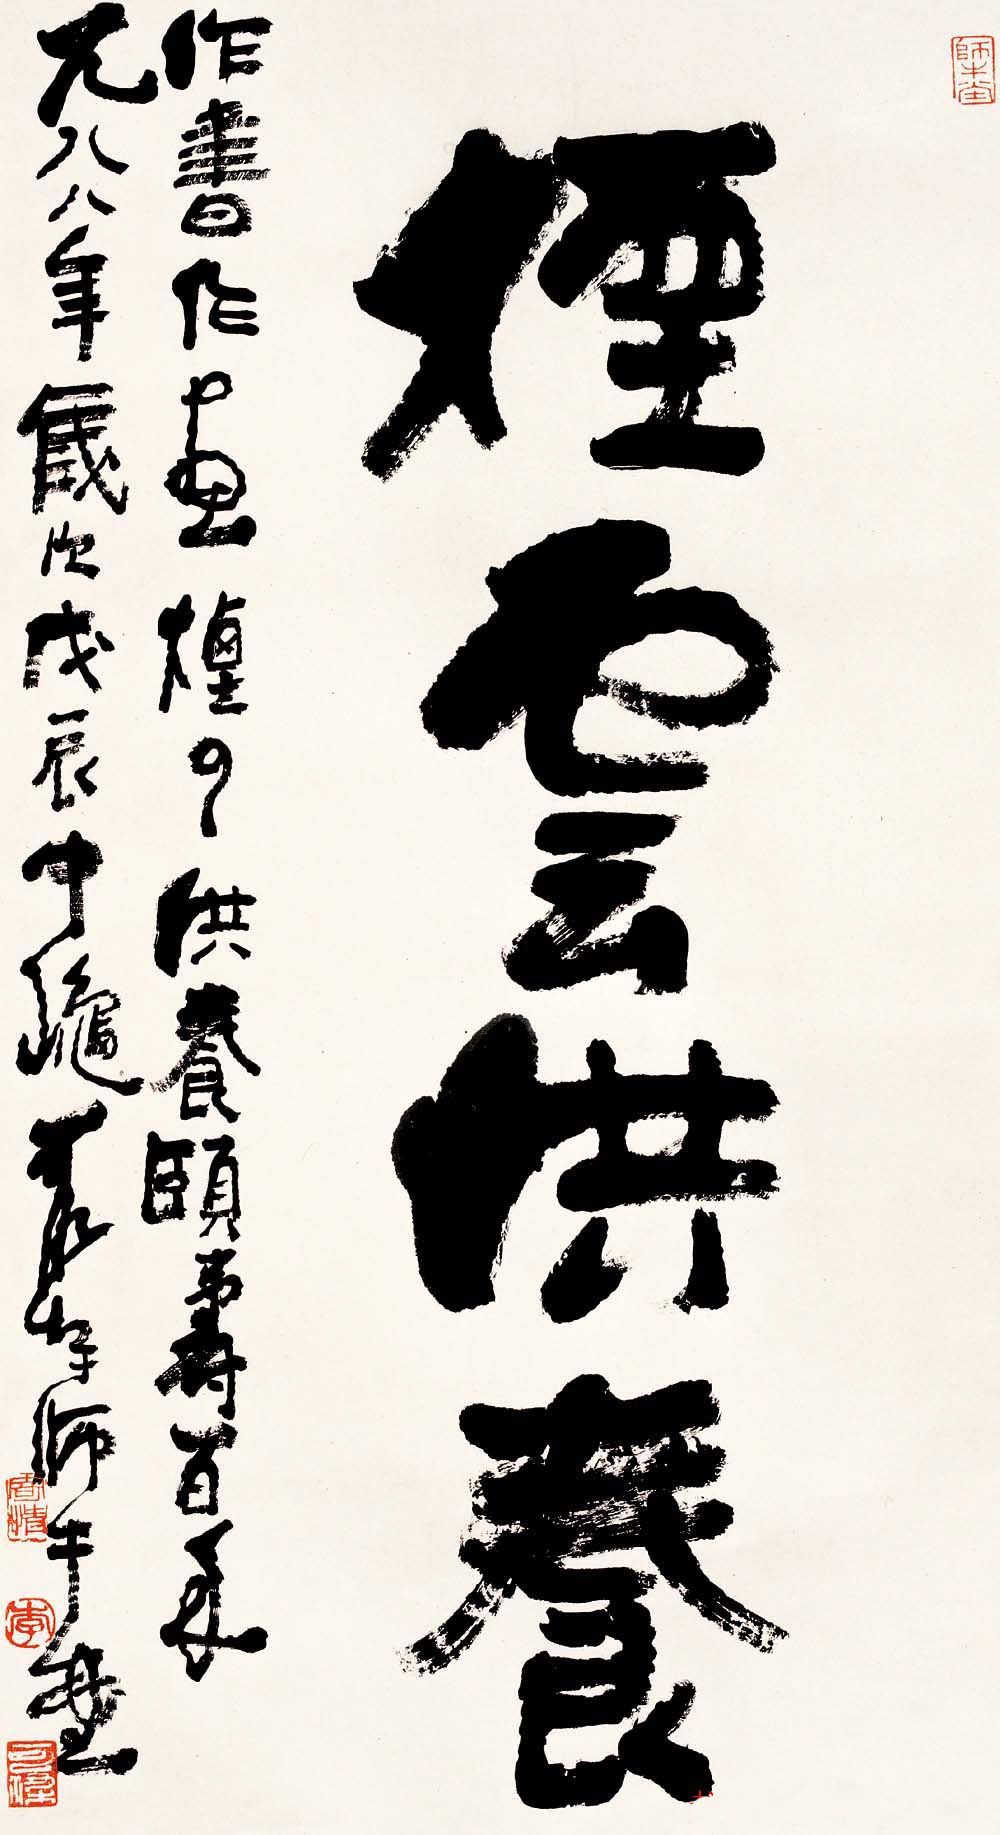 師牛堂
煙雲供養
作書作畫煙雲供養頤壽百年
一九八八年歲次戊辰中龝可染於師牛堂
李
可染